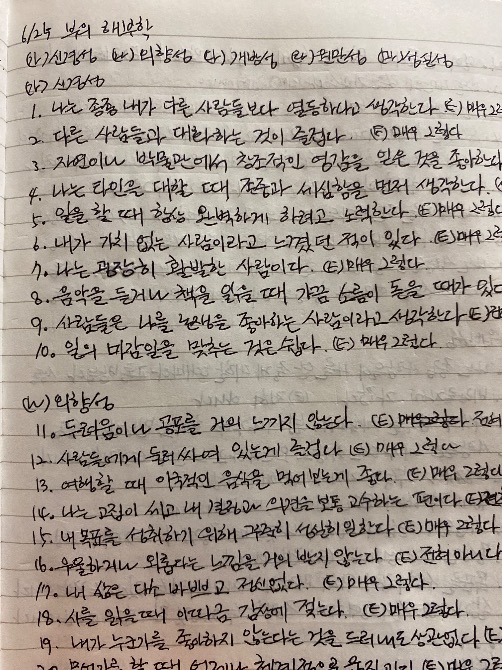 6/24 부의 해부학
가) 신경성 나) 외향성 다) 개방성 라) 원만성 마) 성실성
가) 신경성
1. 나는 종종 내가 다른 사람들보다 열등하다고 생각한다 (E) 매우 그
2. 다른 사람들과 대화하는 것이 즐겁다. (E) 매우 그렇다
3. 자연이나 박물관에서 창조적인 영감을 얻은 것을 좋아한다
4. 나는 타인을 대할 때 존중과 세심함을 먼저 생각한다. (
5. 일을 할 때 항상 완벽하게 하려고 노력한다. (E) 매우 그렇다
6. 내가 가치 없는 사람이라고 느꼈던 적이 있다. (E) 매우 그
7. 나는 굉장히 활발한 사람이다. (E) 매우 그렇다.
8. 음악을 듣거나 책을 읽을 때 가끔 소름이 돋을 때가 있다
9. 사람들은 나를 논쟁을 좋아하는 사람이라고 생각한다 (E)
10. 일의 마감일을 맞추는 것은 쉽다. (E) 매우 그렇다.
(나) 외향성
11. 두려움이나 공포를 거의 느끼지 않는다. (E) 매우그렇다 전혀
12. 사람들에게 둘러 싸여 있는게 즐겁다 (E) 매우 그렇다
13. 여행할 때 이국적인 음식을 먹어보는게 좋다. (E) 매우 그렇다
14. 나는 고집이 씨고 내 결정과 의견을 보통 고수하는 편이다 (E)
15. 내 목표를 성취하기 위해 꾸준히 성실히 일한다 (E) 매우 그렇다.
16. 우울하거나 외롭다는 느낌을 거의 받지 않는다. (E) 전혀 아니다
17. 내 삶은 다소 바쁘고 정신없다. (E) 매우 그렇다.
18. 시를 읽을 때 이따금 감상에 젖는다. (E) 매우 그렇다.
19. 내가 누군가를 좋아하지 않는다는 것을 드러내도 상관없다 (E